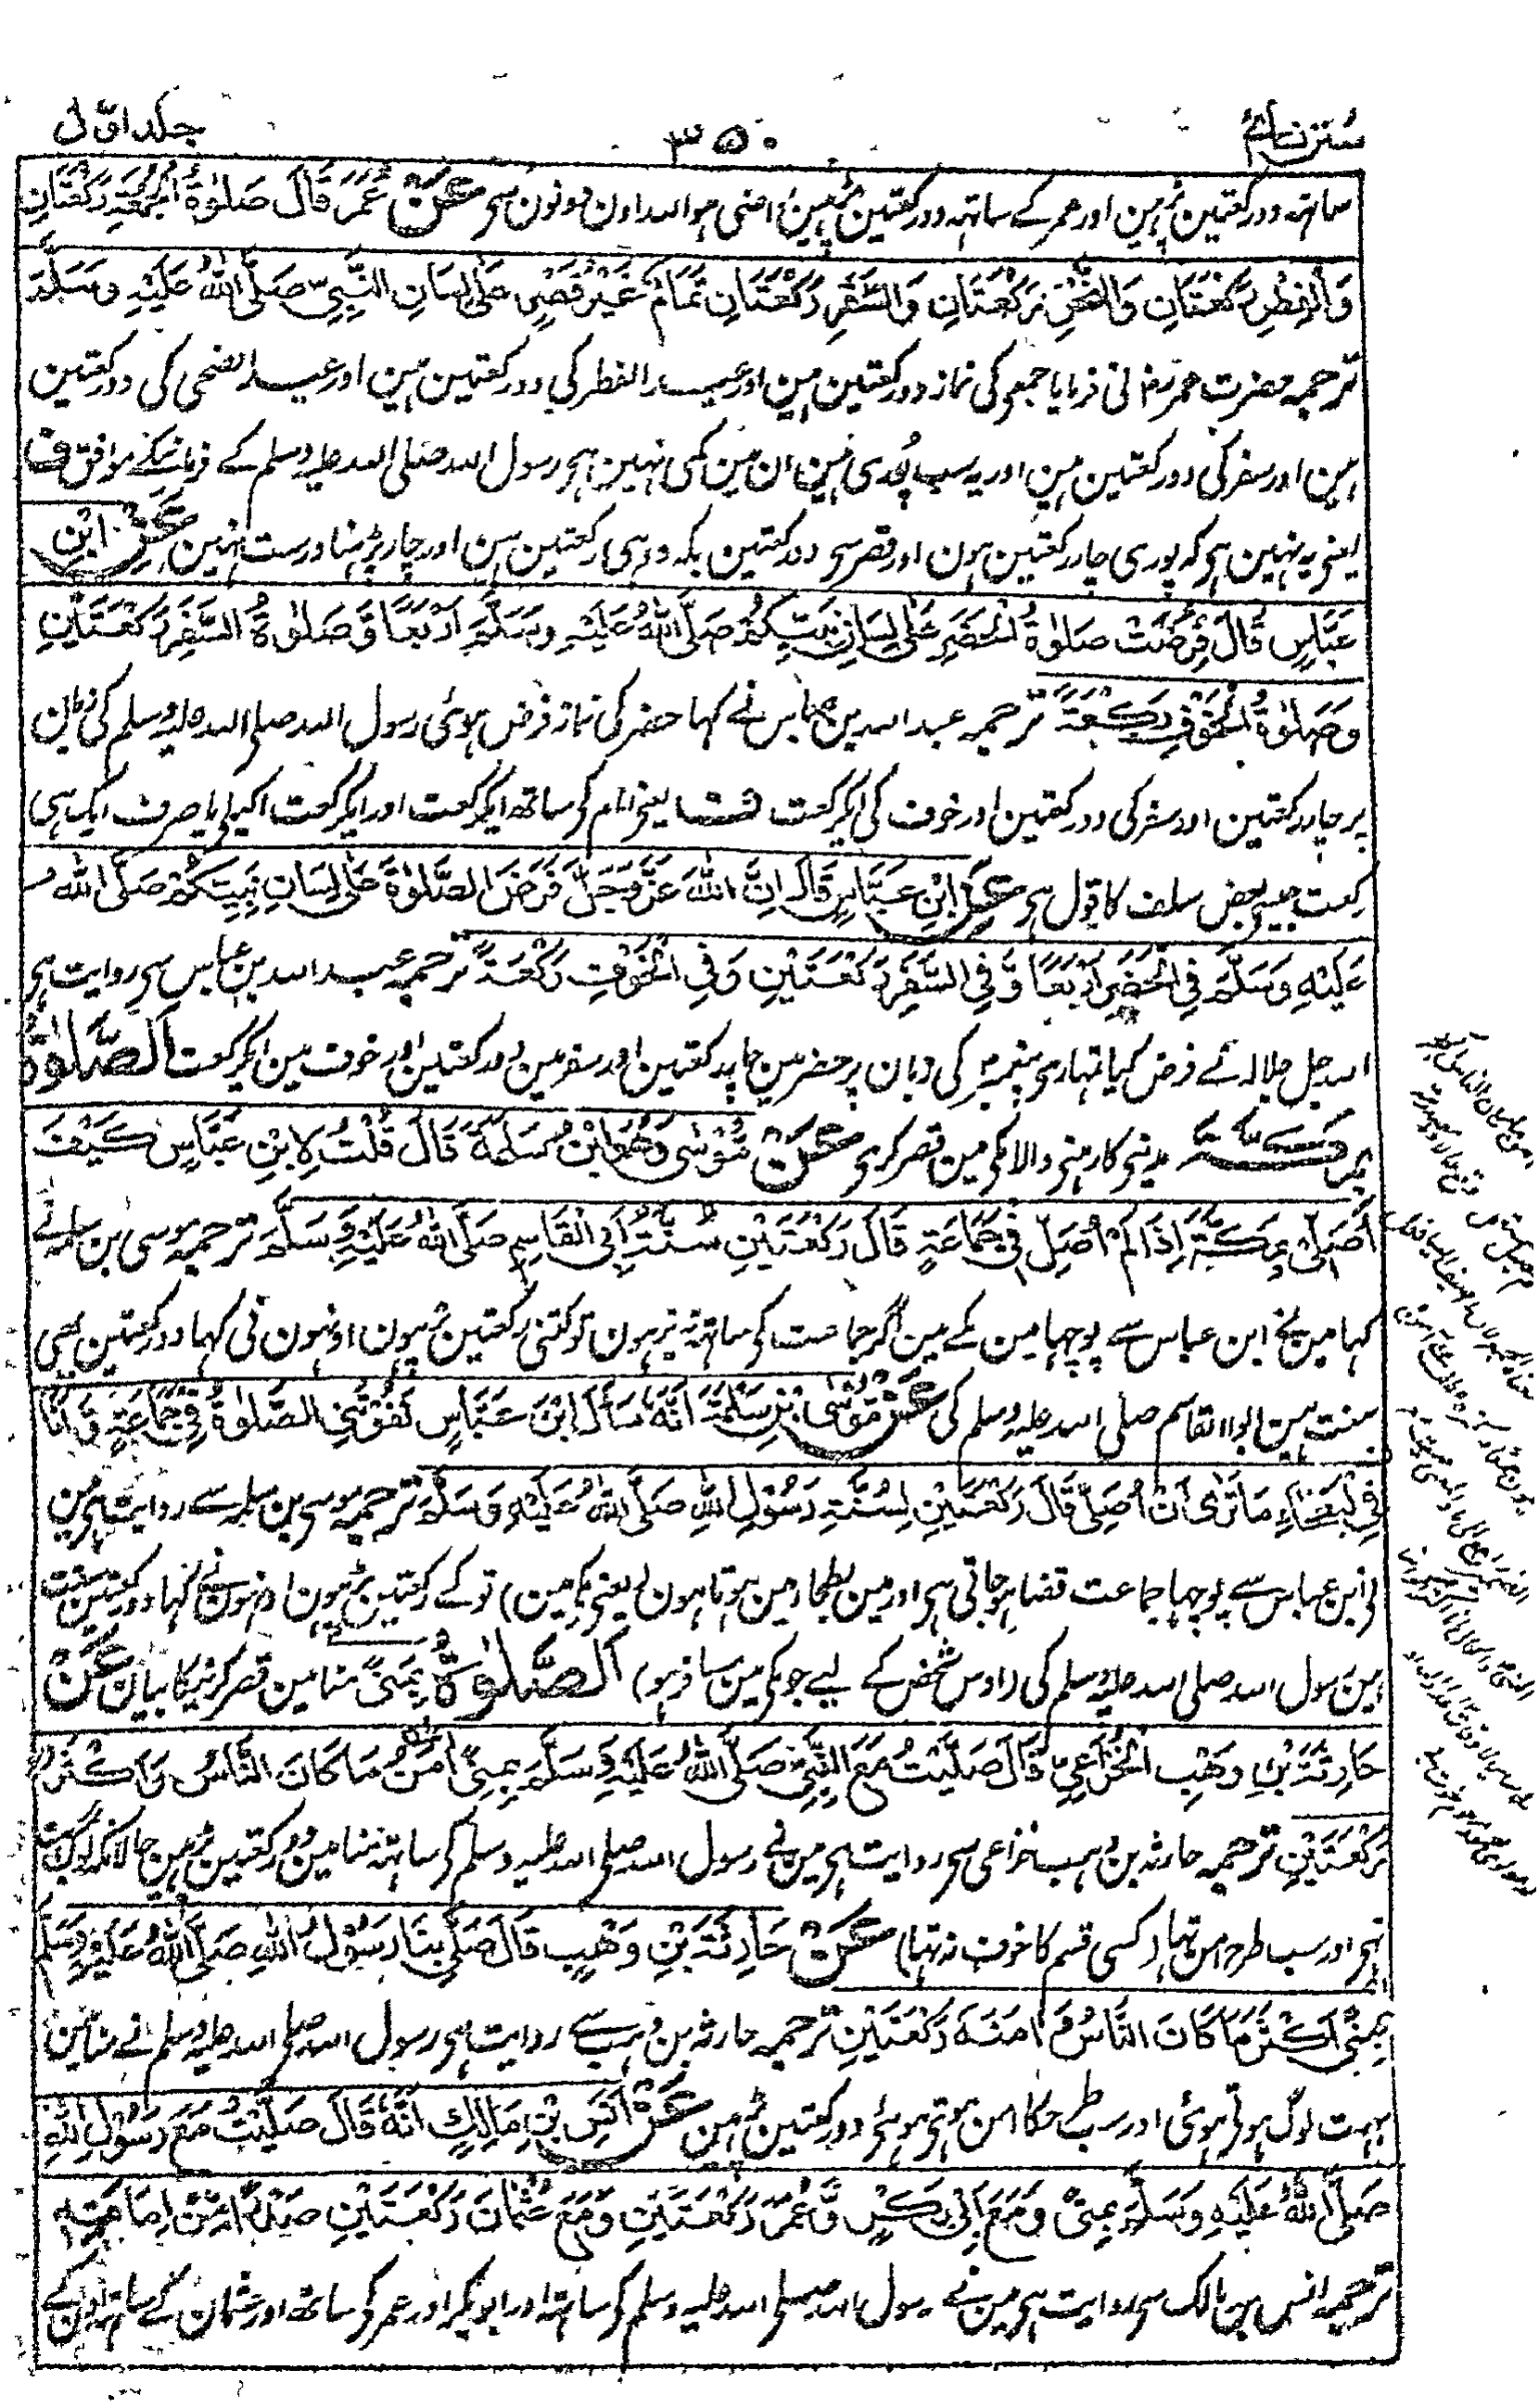 سنن نسائی
۳۵۰
جلد اوّل
ساتھ دو رکعتین پڑہین اور عمر کے ساتہہ دو رکعتین پڑہین راضی ہو اللہ اون دونون سی عَنْ عُمَرَ قَالَ صَلٰوةُ الْجُمُعَةِ رَكْعَتَانِ
وَالْفِطْرِ رَكْعَتَانِ وَالنَّحْرِ رَكْعَتَانِ وَالسَّفَرِ رَكْعَتَانِ تَمَامٌ غَيْرُ قَصْرٍ عَلٰى لِسَانِ النَّبِيِّ صَلَّى اللّٰهُ عَلَيْهِ وَسَلَّمَ
ترجمہ حضرت عمر رض نی فرمایا جمعی کی نماز دو رکعتین ہین اور عید الفطر کی دو رکعتین ہین اور عید الضحی کی دو رکعتین
ہین اور سفر کی دو رکعتین ہین اور یہ سب پُوری ہین ان مین کمی نہین ہی رسول اللہ صلی اللہ علیہ وسلم کے فرمانیکے موافق ف
یعنی یہ نہین ہی کہ پوری چار رکعتین ہون اور قصر سی دو رکعتین بلکہ دو ہی رکعتین ہین اور چار پڑہنا درست نہین عَنْ ابْنِ
عَبَّاسٍ قَالَ فُرِضَتْ صَلٰوةُ الْحَضَرِ عَلٰى لِسَانِ نَبِيِّكُمْ صَلَّى اللّٰهُ عَلَيْهِ وَسَلَّمَ اَرْبَعًا وَّصَلٰوةُ السَّفَرِ رَكْعَتَيْنِ
وَصَلٰوةُ الْخَوْفِ رَكْعَةً ترجمہ عبد اللہ بن عباس نے کہا حضر کی نماز فرض ہوئی رسول اللہ صلی اللہ علیہ وسلم کی زبان
پر چار رکعتین اور سفر کی دو رکعتین اور خوف کی ایک رکعت ف یعنی امام کی ساتھ ایک رکعت اور ایک رکعت اکیلی یا صرف ایک ہی
رکعت جیسی بعض سلف کا قول ہی عَنِ ابْنِ عَبَّاسٍ قَالَ اِنَّ اللّٰهَ عَزَّ وَجَلَّ فَرَضَ الصَّلٰوةَ عَلٰى لِسَانِ نَبِيِّكُمْ صَلَّى اللّٰهُ
عَلَيْهِ وَسَلَّمَ فِي الْحَضَرِ اَرْبَعًا وَّفِي السَّفَرِ رَكْعَتَيْنِ وَفِي الْخَوْفِ رَكْعَةً ترجمہ عبد اللہ بن عباس سی روایت ہی
اللہ جل جلالہ نے فرض کیا تمہاری پیغمبر کی زبان پر حضر مین چار رکعتین اور سفر مین دو رکعتین اور خوف مین ایک رکعت اَلصَّلٰوةُ
بِمَكَّةَ مدینی کا رہنی والا مکی مین قصر کری عَنْ مُوْسٰى وَهُوَ ابْنُ سَلَمَةَ قَالَ قُلْتُ لِابْنِ عَبَّاسٍ كَيْفَ
اُصَلِّيْ بِمَكَّةَ اِذَا لَمْ اُصَلِّ فِيْ جَمَاعَةٍ قَالَ رَكْعَتَيْنِ سُنَّةُ اَبِي الْقَاسِمِ صَلَّى اللّٰهُ عَلَيْهِ وَسَلَّمَ ترجمہ موسی بن سلمہ نے
کہا مین نے ابن عباس سے پوچہا مین مکے مین اگر جماعت کی ساتہہ نہ پڑہون تو کتنی رکعتین پڑہون اونہون نی کہا دو رکعتین یہی
سنت ہین ابو القاسم صلی اللہ علیہ وسلم کی عَنْ مُوْسَى بْنِ سَلَمَةَ اَنَّهٗ سَاَلَ ابْنَ عَبَّاسٍ تَفُوْتُنِي الصَّلٰوةُ فِيْ جَمَاعَةٍ وَاَنَا
فِي الْبَطْحَاءِ مَا تَرٰى اَنْ اُصَلِّيَ قَالَ رَكْعَتَيْنِ لِسُنَّةِ رَسُوْلِ اللّٰهِ صَلَّى اللّٰهُ عَلَيْهِ وَسَلَّمَ ترجمہ موسی بن سلمہ سے روایت ہی مین
نی ابن عباس سے پوچہا جماعت قضا ہو جاتی ہی اور مین بطحا مین ہوتا ہون (یعنی مکی مین) تو کے رکعتین پڑہون اونہون نے کہا دو رکعتین سنت
ہین رسول اللہ صلی اللہ علیہ وسلم کی (اوس شخص کے لیے جو مکی مین مسافر ہو) اَلصَّلٰوةُ بِمِنًى منا مین قصر کرنیکا بیان عَنْ
حَارِثَةَ بْنِ وَهْبٍ الْخُزَاعِيِّ قَالَ صَلَّيْتُ مَعَ النَّبِيِّ صَلَّى اللّٰهُ عَلَيْهِ وَسَلَّمَ بِمِنًى اٰمَنَ مَا كَانَ النَّاسُ وَاَكْثَرَهٗ
رَكْعَتَيْنِ ترجمہ حارثہ بن وہب خزاعی سی روایت ہی مین نے رسول اللہ صلی اللہ علیہ وسلم کی ساتہہ منا مین دو رکعتین پڑہین حالانکہ لوگ بہت
تہی اور سب طرح امن تہا (کسی قسم کا خوف نہ تہا) عَنْ حَارِثَةَ بْنِ وَهْبٍ قَالَ صَلّٰى بِنَا رَسُوْلُ اللّٰهِ صَلَّى اللّٰهُ عَلَيْهِ وَسَلَّمَ
بِمِنًى اَكْثَرَ مَا كَانَ النَّاسُ وَاٰمَنَهٗ رَكْعَتَيْنِ ترجمہ حارثہ بن وہب سے روایت ہی رسول اللہ صلی اللہ علیہ وسلم نے منا مین
بہت لوگ ہوتی ہوئی اور سب طرحکا امن ہوتی ہوئی دو رکعتین پڑہین عَنْ اَنَسِ بْنِ مَالِكٍ اَنَّهٗ قَالَ صَلَّيْتُ مَعَ رَسُوْلِ اللّٰهِ
صَلَّى اللّٰهُ عَلَيْهِ وَسَلَّمَ بِمِنًى وَمَعَ اَبِيْ بَكْرٍ وَّعُمَرَ رَكْعَتَيْنِ وَمَعَ عُثْمَانَ رَكْعَتَيْنِ صَدْرًا مِّنْ اِمَارَتِهٖ
ترجمہ انس بن مالک سی روایت ہی مین نے رسول اللہ صلی اللہ علیہ وسلم کی ساتہہ اور ابو بکر اور عمر کی ساتھ اور عثمان کے ساتہہ اون کے